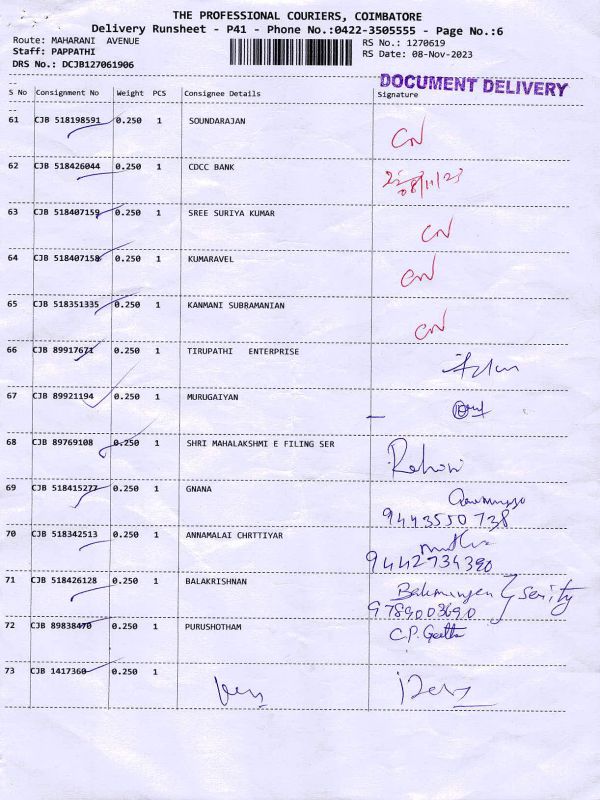 THE PROFESSIONAL COURIERS, COIMBATORE
Delivery Runsheet - P41 - Phone No.:0422-3505555 - Page No.:6
Route: MAHARANI AVENUE
RS No.: 1270619
Staff: PAPPATHI
RS Date: 08-Nov-2023
DRS No.: DCJB127061906
DOCUMENT DELIVERY
S No Consignment No Weight PCS Consignee Details Signature
61 CJB 518198591 0.250 1 SOUNDARAJAN CN
62 CJB 518426044 0.250 1 CDCC BANK 08/11/23
63 CJB 518407159 0.250 1 SREE SURIYA KUMAR CN
64 CJB 518407158 0.250 1 KUMARAVEL CN
65 CJB 518351335 0.250 1 KANMANI SUBRAMANIAN CN
66 CJB 89917671 0.250 1 TIRUPATHI ENTERPRISE
67 CJB 89921194 0.250 1 MURUGAIYAN
68 CJB 89769108 0.250 1 SHRI MAHALAKSHMI E FILING SER
69 CJB 518415277 0.250 1 GNANA
9443550738
70 CJB 518342513 0.250 1 ANNAMALAI CHRTTIYAR
9442734390
71 CJB 518426128 0.250 1 BALAKRISHNAN
9789003690
72 CJB 89838470 0.250 1 PURUSHOTHAM C.P. Geetha
73 CJB 1417360 0.250 1